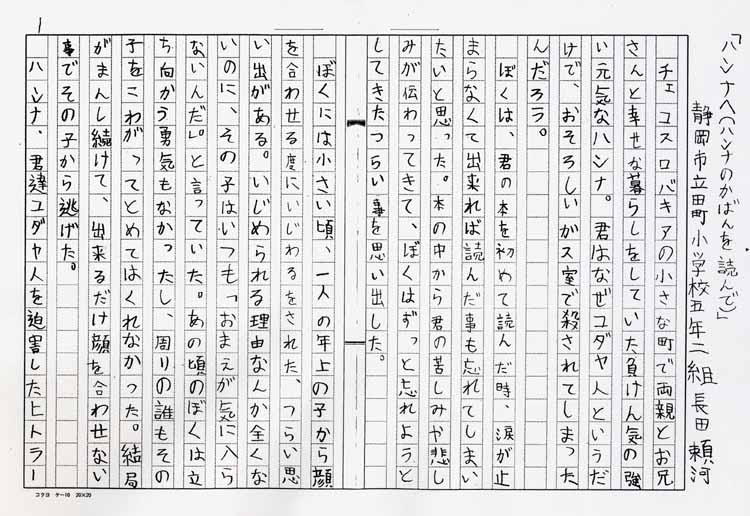 「ハンナへ(ハンナのかばんを読んで)」
静岡市立田町小学校五年二組 長田頼河
チェコスロバキアの小さな町で両親とお兄
さんと幸せな暮らしをしていた負けん気の強
い元気なハンナ。君はなぜユダヤ人というだ
けで、おそろしいガス室で殺されてしまった
んだろう。
ぼくは、君の本を初めて読んだ時、涙が止
まらなくて出来れば読んだ事も忘れてしまい
たいと思った。本の中から君の苦しみや悲し
みが伝わってきて、ぼくはずっと忘れようと
してきたつらい事を思い出した。
ぼくには小さい頃、一人の年上の子から顔
を合わせる度にいじわるをされた、つらい思
い出がある。いじめられる理由なんか全くな
いのに、その子はいつも「おまえが気に入ら
ないんだ」。と言っていた。あの頃のぼくは立
ち向かう勇気もなかったし、周りの誰もその
子をこわがってとめてはくれなかった。結局
がまんし続けて、出来るだけ顔を合わせない
事でその子から逃げた。
ハンナ、君達ユダヤ人を迫害したヒトラー
1
コクヨ ケー10 20×20